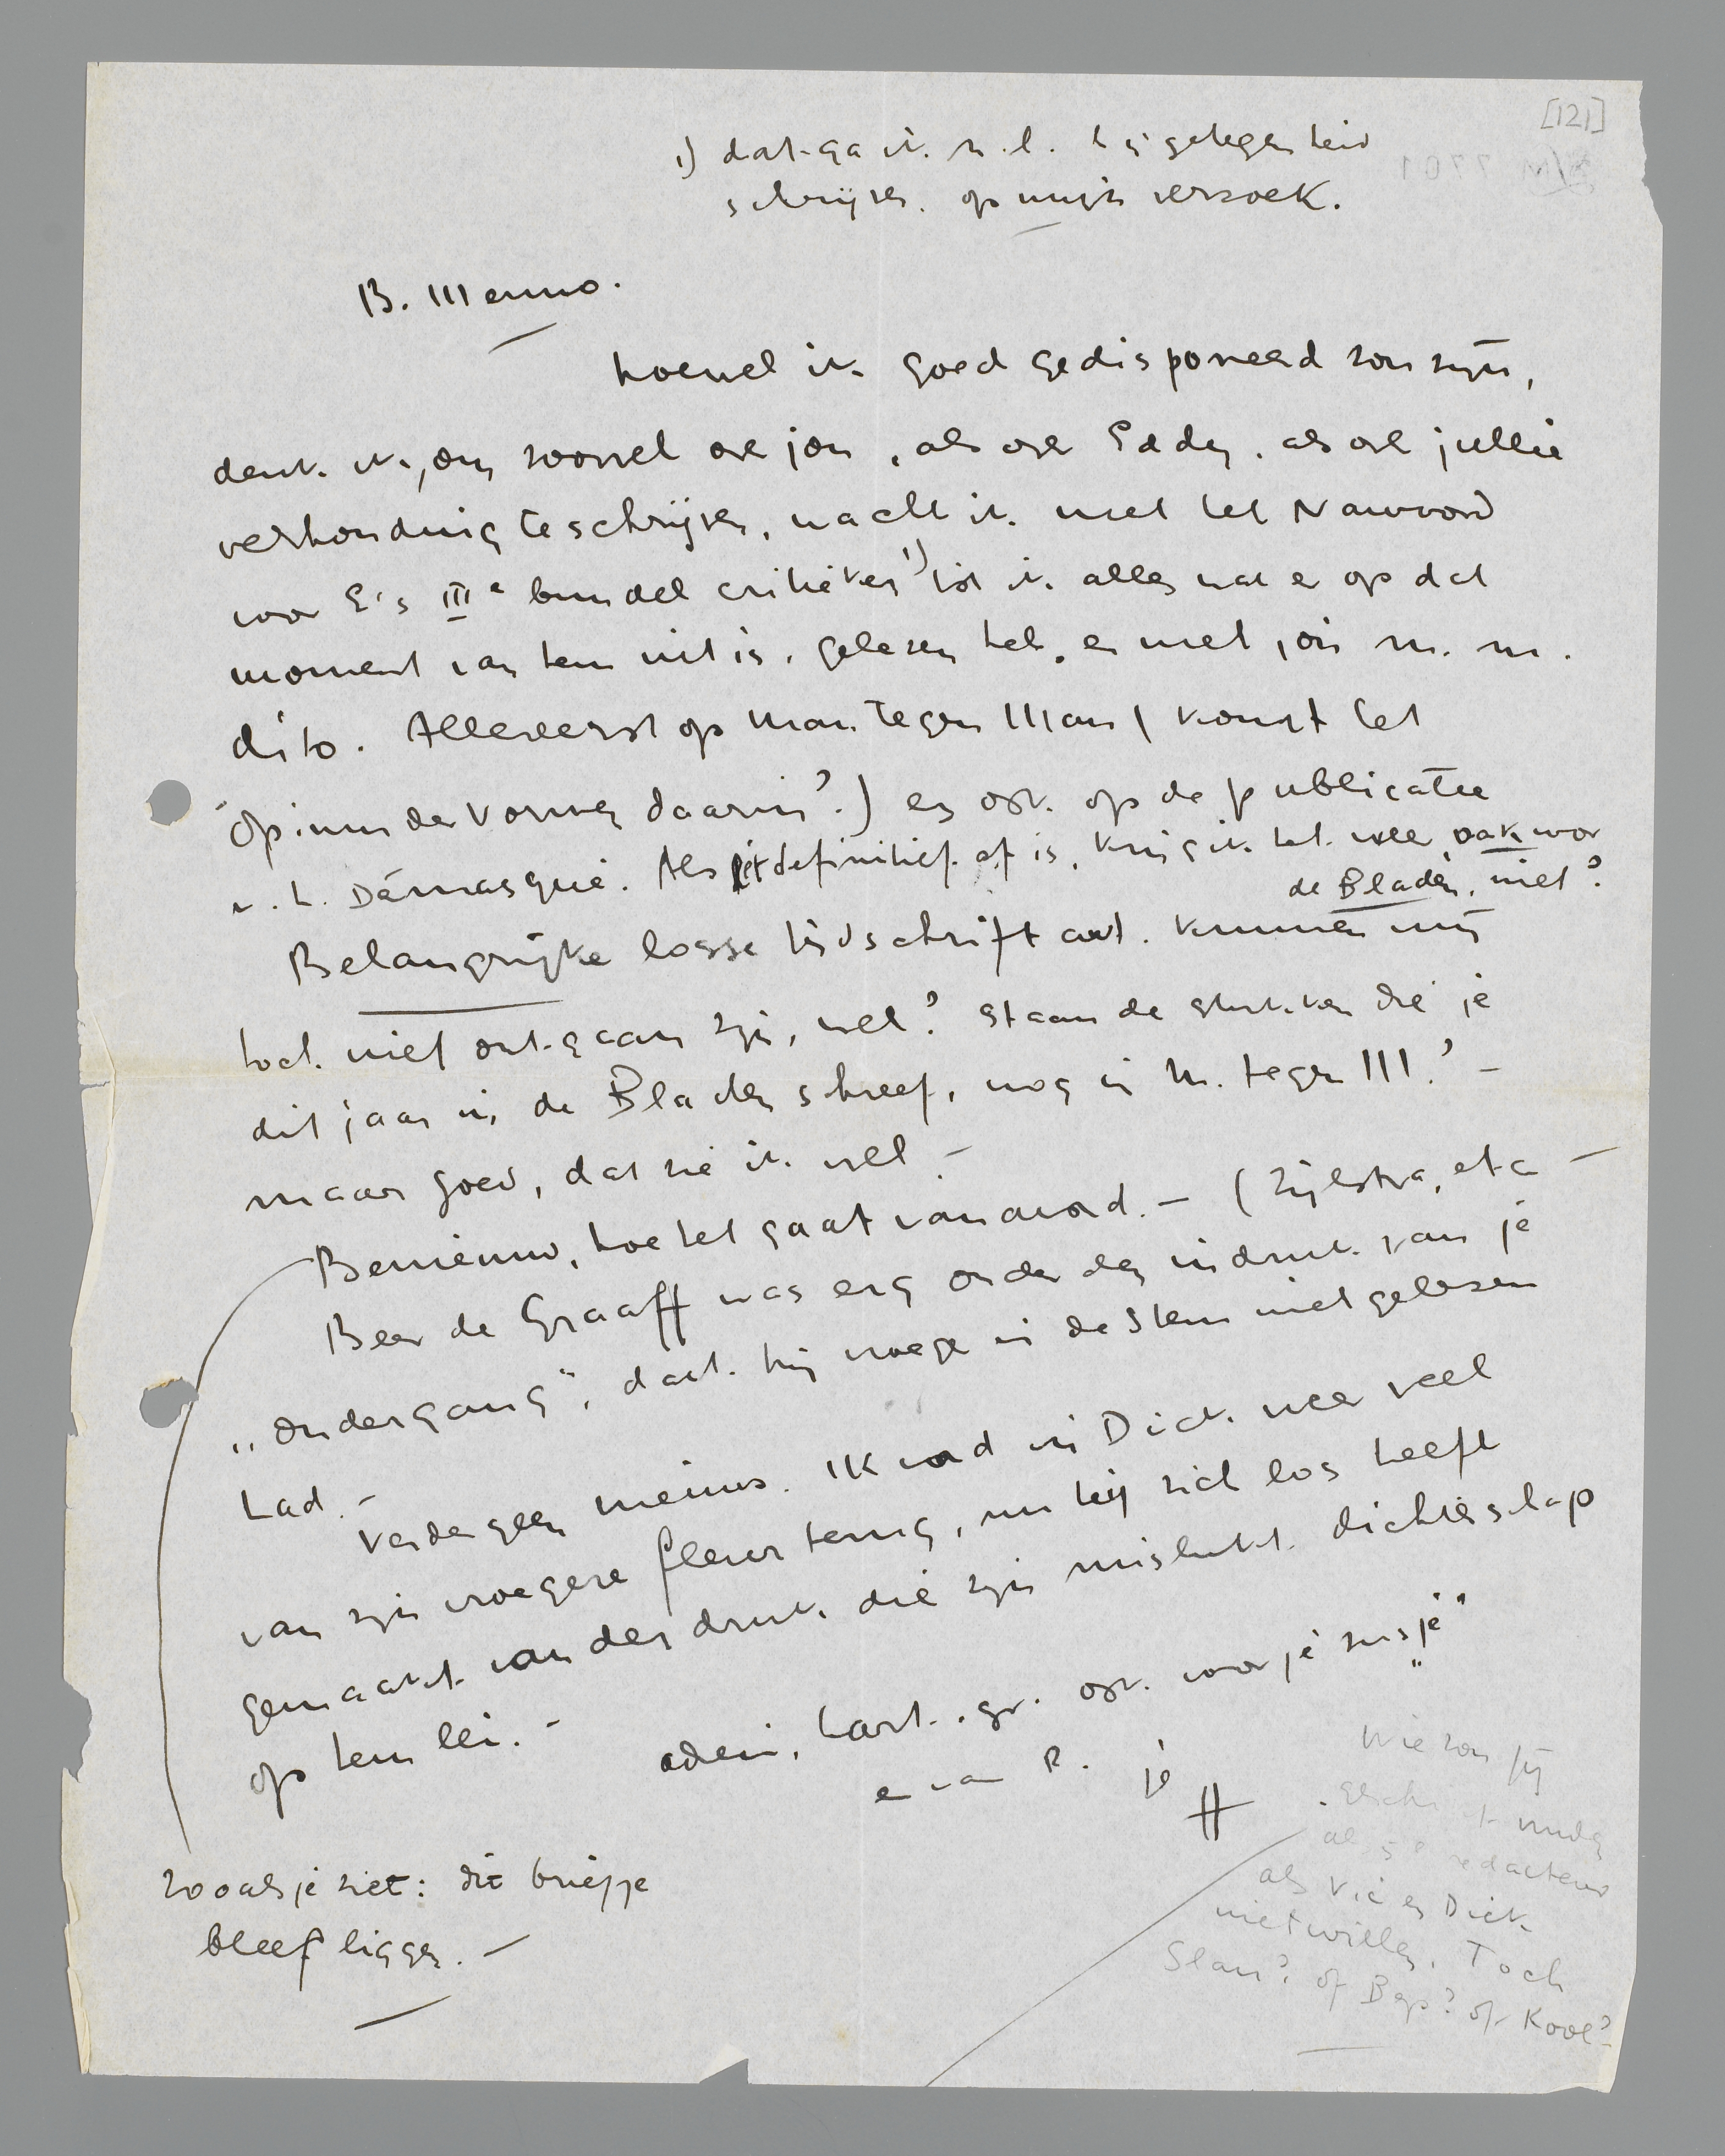 [121]
1) dat ga ik n.l. bij gelegenheid
schrijven. op mijn verzoek.
B. Menno.
hoewel ik goed gedisponeerd zou zijn,
denk ik, om zoowel over jou, als over Eddy, als over jullie
verhouding te schrijven, wacht ik met het Nawoord
voor E's IIIe bundel critieken 1) tot ik alles wat er op dat
moment van hem uit is, gelezen heb, en met jou m. m.
dito. Allereerst op Man tegen Man (komt het
opium der vormen daarin?) en ook op de publicatie
v. h. Démasqué. Als het definitief af is, krijg ik het weer ook voor
de Bladen, niet?
Belangrijke losse tijdschrift art. kunnen mij
toch niet ontgaan zijn, wel? Staan de stukken die je
dit jaar in de Bladen schreef, nog in M. tegen M? -
maar goed, dat zie ik wel -
Benieuwd, hoe het gaat vanavond. - (Zijlstra, etc -
Beer de Graaff was erg onder den indruk van je
"ondergang", dat hij vroeger in de Stem niet gelezen
had. -
Verder geen nieuws. Ik vind in Dick weer veel
van zijn vroegere fleur terug, nu hij zich los heeft
gemaakt van den druk die zijn mislukt dichterschap
op hem lei. -
adieu, hart. gr. ook voor je "zusje"
en van R. je
H
zooals je ziet: dit briefje
bleef liggen. -
Wie zou jij
redacteur
als Vic en Dick
niet willen. Toch
Slau? of Bep? of Kool?